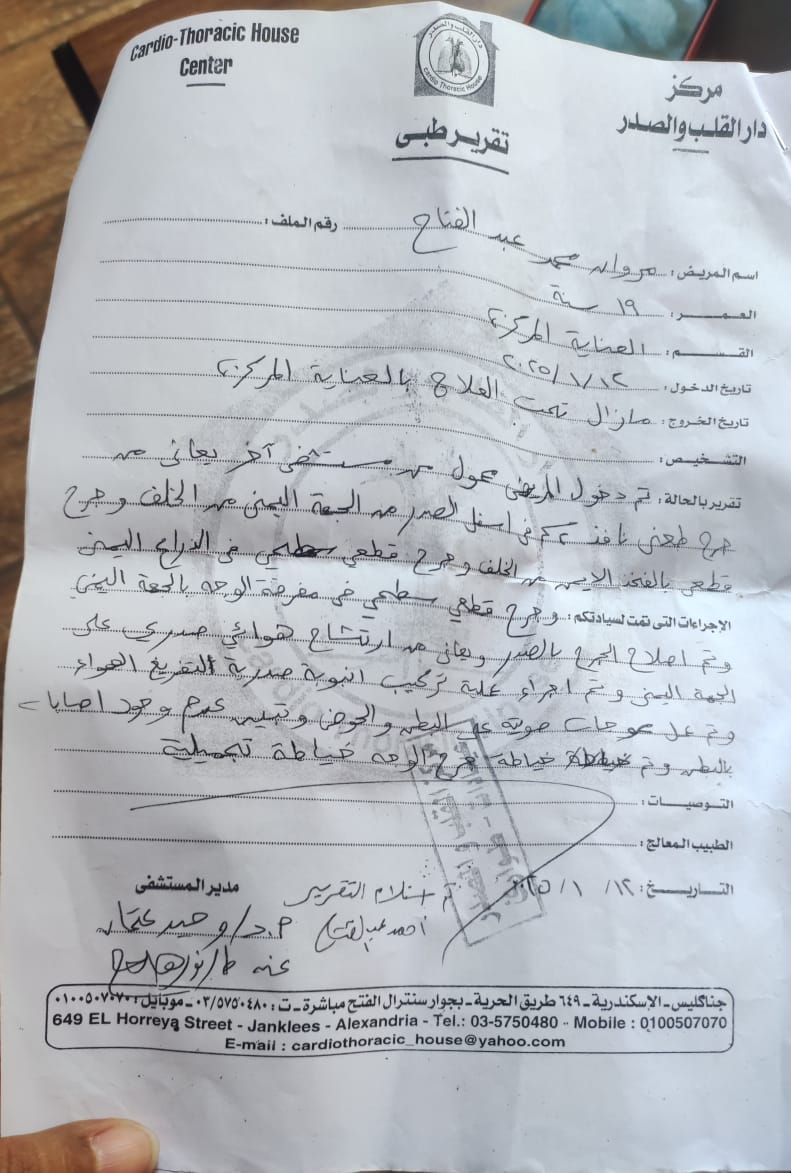 Cardio-Thoracic House
Center
دار القلب والصدر
Cardio Thoracic House
مركز
دار القلب والصدر
تقرير طبى
اسم المريض : مروان محمد عبد الفتاح رقم الملف :
العمــر : ١٩ سنة
القسم : العناية المركزة
تاريخ الدخول : ٢٠٢٥/١/١٢
تاريخ الخروج : مازال تحت العلاج بالعناية المركزة
التشخيص :
تقرير بالحالة : تم دخول المريض محول من مستشفى آخر يعانى من
جرح طعنى نافذ ٢ سم فى اسفل الصدر من الجهة اليمنى من الخلف وجرح
قطعي بالفخذ الايمن من الخلف وجرح قطعي سطحي فى الذراع اليمنى
الإجراءات التى تمت لسيادتكم : وجرح قطعي سطحي فى الوجه بالجهة اليمنى
وتم اصلاح الجرح بالصدر ويعانى من ارتشاح هوائي صدرى على
الجهة اليمنى وتم اجراء عملية تركيب انبوبة صدرية لتفريغ الهواء
وتم عمل موجات صوتية على البطن والحوض وتبين عدم وجود اصابات
بالبطن وتم خياطة جرح الوجه خياطة تجميلية
التوصيات :
الطبيب المعالج :
التاريخ : ١٢ / ١ / ٢٠٢٥
تم استلام التقرير
احمد عبد الفتاح
مدير المستشفى
م.د/ وحيد عثمان
عنه
جناكليس - الإسكندرية - ٦٤٩ طريق الحرية - بجوار سنترال الفتح مباشرة - ت : ٠٣/٥٧٥٠٤٨٠ - موبايل : ٠١٠٠٥٠٧٠٧٠
649 EL Horreya Street - Janklees - Alexandria - Tel.: 03-5750480 - Mobile : 0100507070
E-mail : cardiothoracic_house@yahoo.com